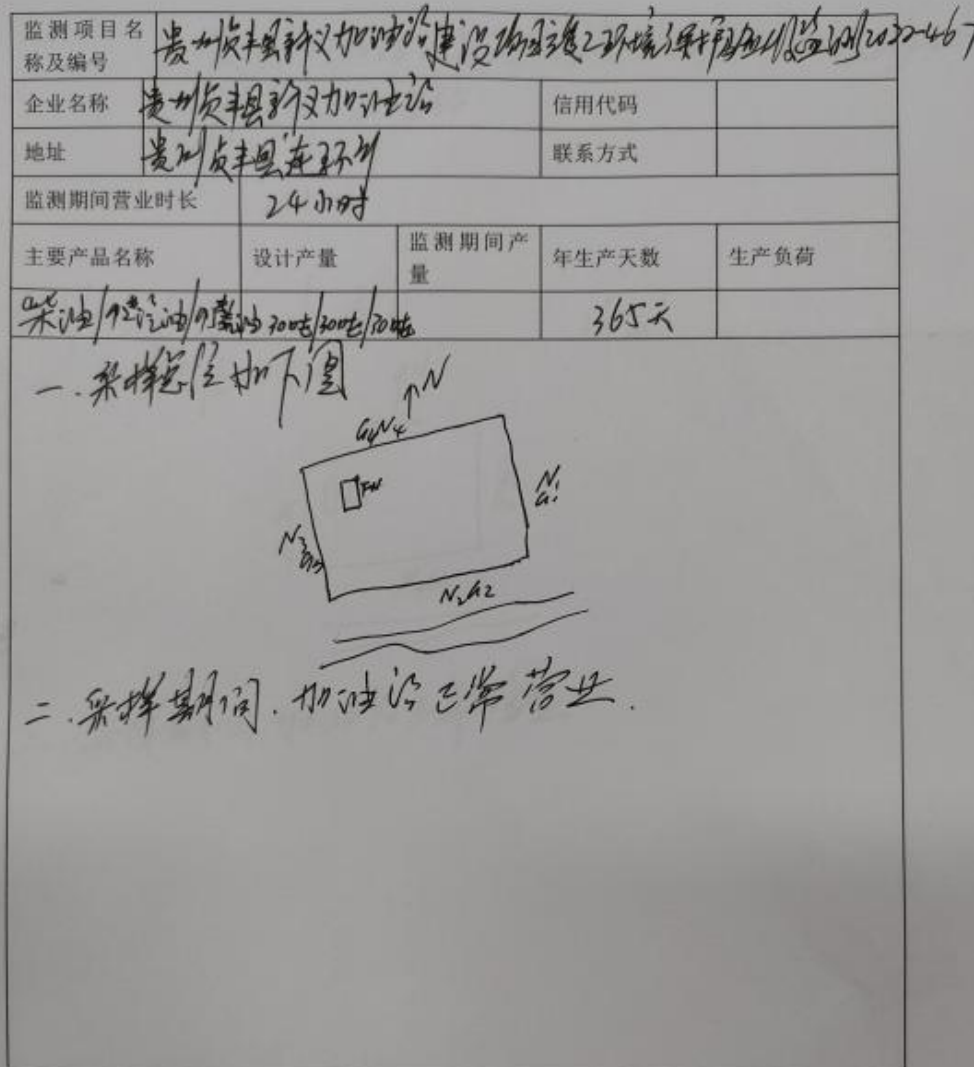 监测项目名称及编号 贵州贞丰县新义加油站建设项目竣工环境保护验收监测2022-467
企业名称 贵州贞丰县新义加油站 信用代码
地址 贵州贞丰县连环 联系方式
监测期间营业时长 24小时
主要产品名称 设计产量 监测期间产量 年生产天数 生产负荷
柴油/92汽油/95汽油 30吨/30吨/30吨 365天
一.采样点位如下图
↑N
G4N4
FW
N1
G1
N3
G3
N2G2
二.采样期间.加油站正常营业.